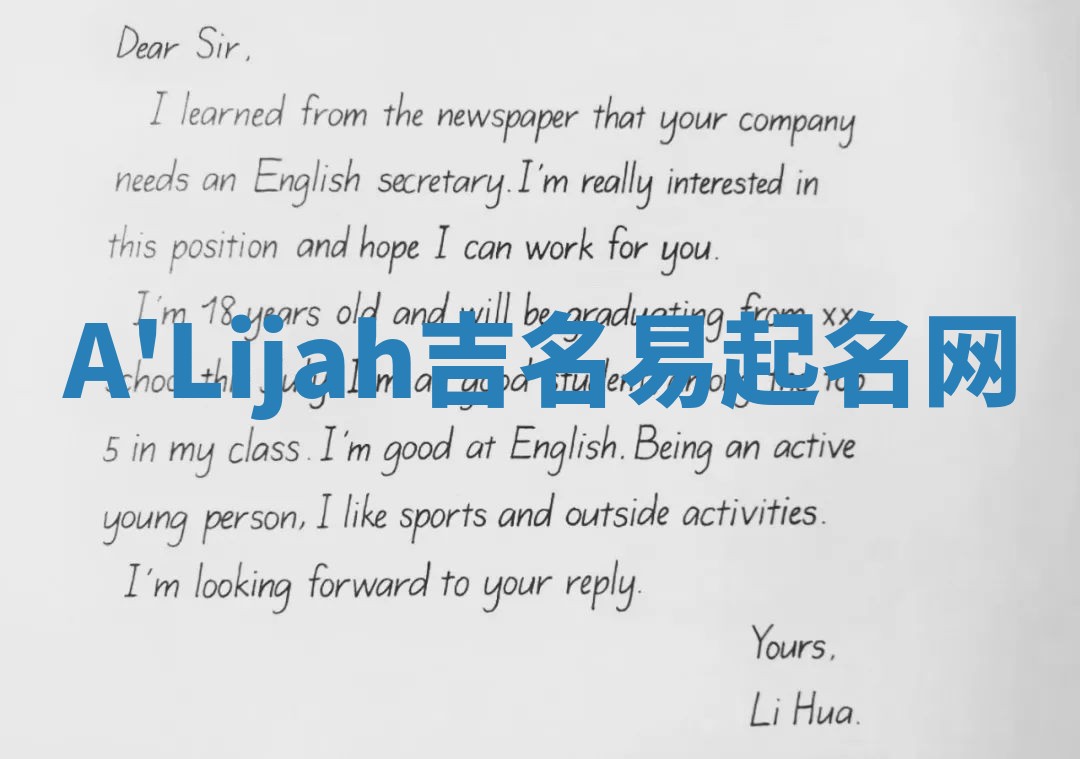 Dear Sir,
I learned from the newspaper that your company
needs an English secretary. I'm really interested in
this position and hope I can work for you.
I'm 18 years old and will be graduating from xx
A'Lijah吉名易起名网
school this July. I'm a good student among the top
5 in my class. I'm good at English. Being an active
young person, I like sports and outside activities.
I'm looking forward to your reply.
Yours,
Li Hua.